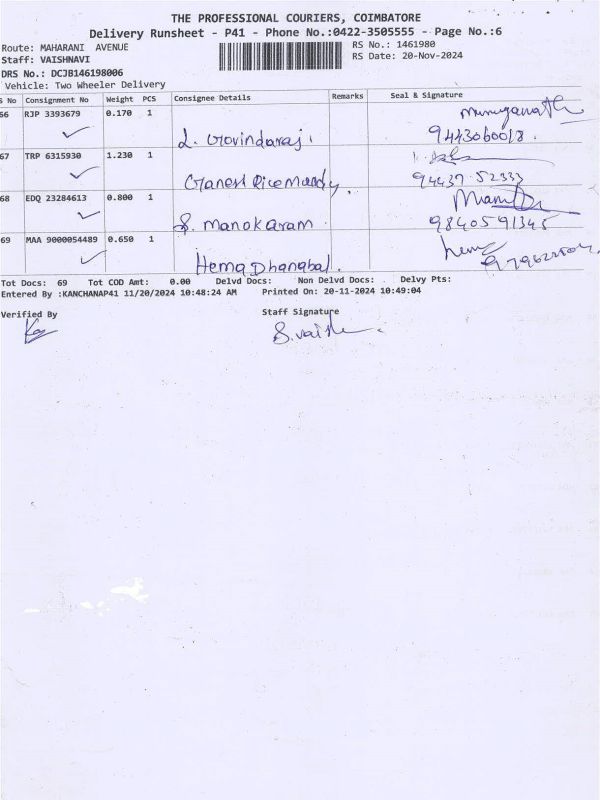 THE PROFESSIONAL COURIERS, COIMBATORE
Delivery Runsheet - P41 - Phone No.:0422-3505555 - Page No.:6
Route: MAHARANI AVENUE
RS No.: 1461980
Staff: VAISHNAVI
RS Date: 20-Nov-2024
DRS No.: DCJB146198006
Vehicle: Two Wheeler Delivery
S No Consignment No Weight PCS Consignee Details Remarks Seal & Signature
66 RJP 3393679 0.170 1
L. Govindaraj. 9443060018.
67 TRP 6315930 1.230 1
Ganesh Rice Mandy. 94437 52333
68 EDQ 23284613 0.800 1
S. Manokaram 9840591345
69 MAA 9000054489 0.650 1
Hema Dhanabal.
Tot Docs: 69 Tot COD Amt: 0.00 Delvd Docs: Non Delvd Docs: Delvy Pts:
Entered By :KANCHANAP41 11/20/2024 10:48:24 AM Printed On: 20-11-2024 10:49:04
Verified By Staff Signature
S. Vaish